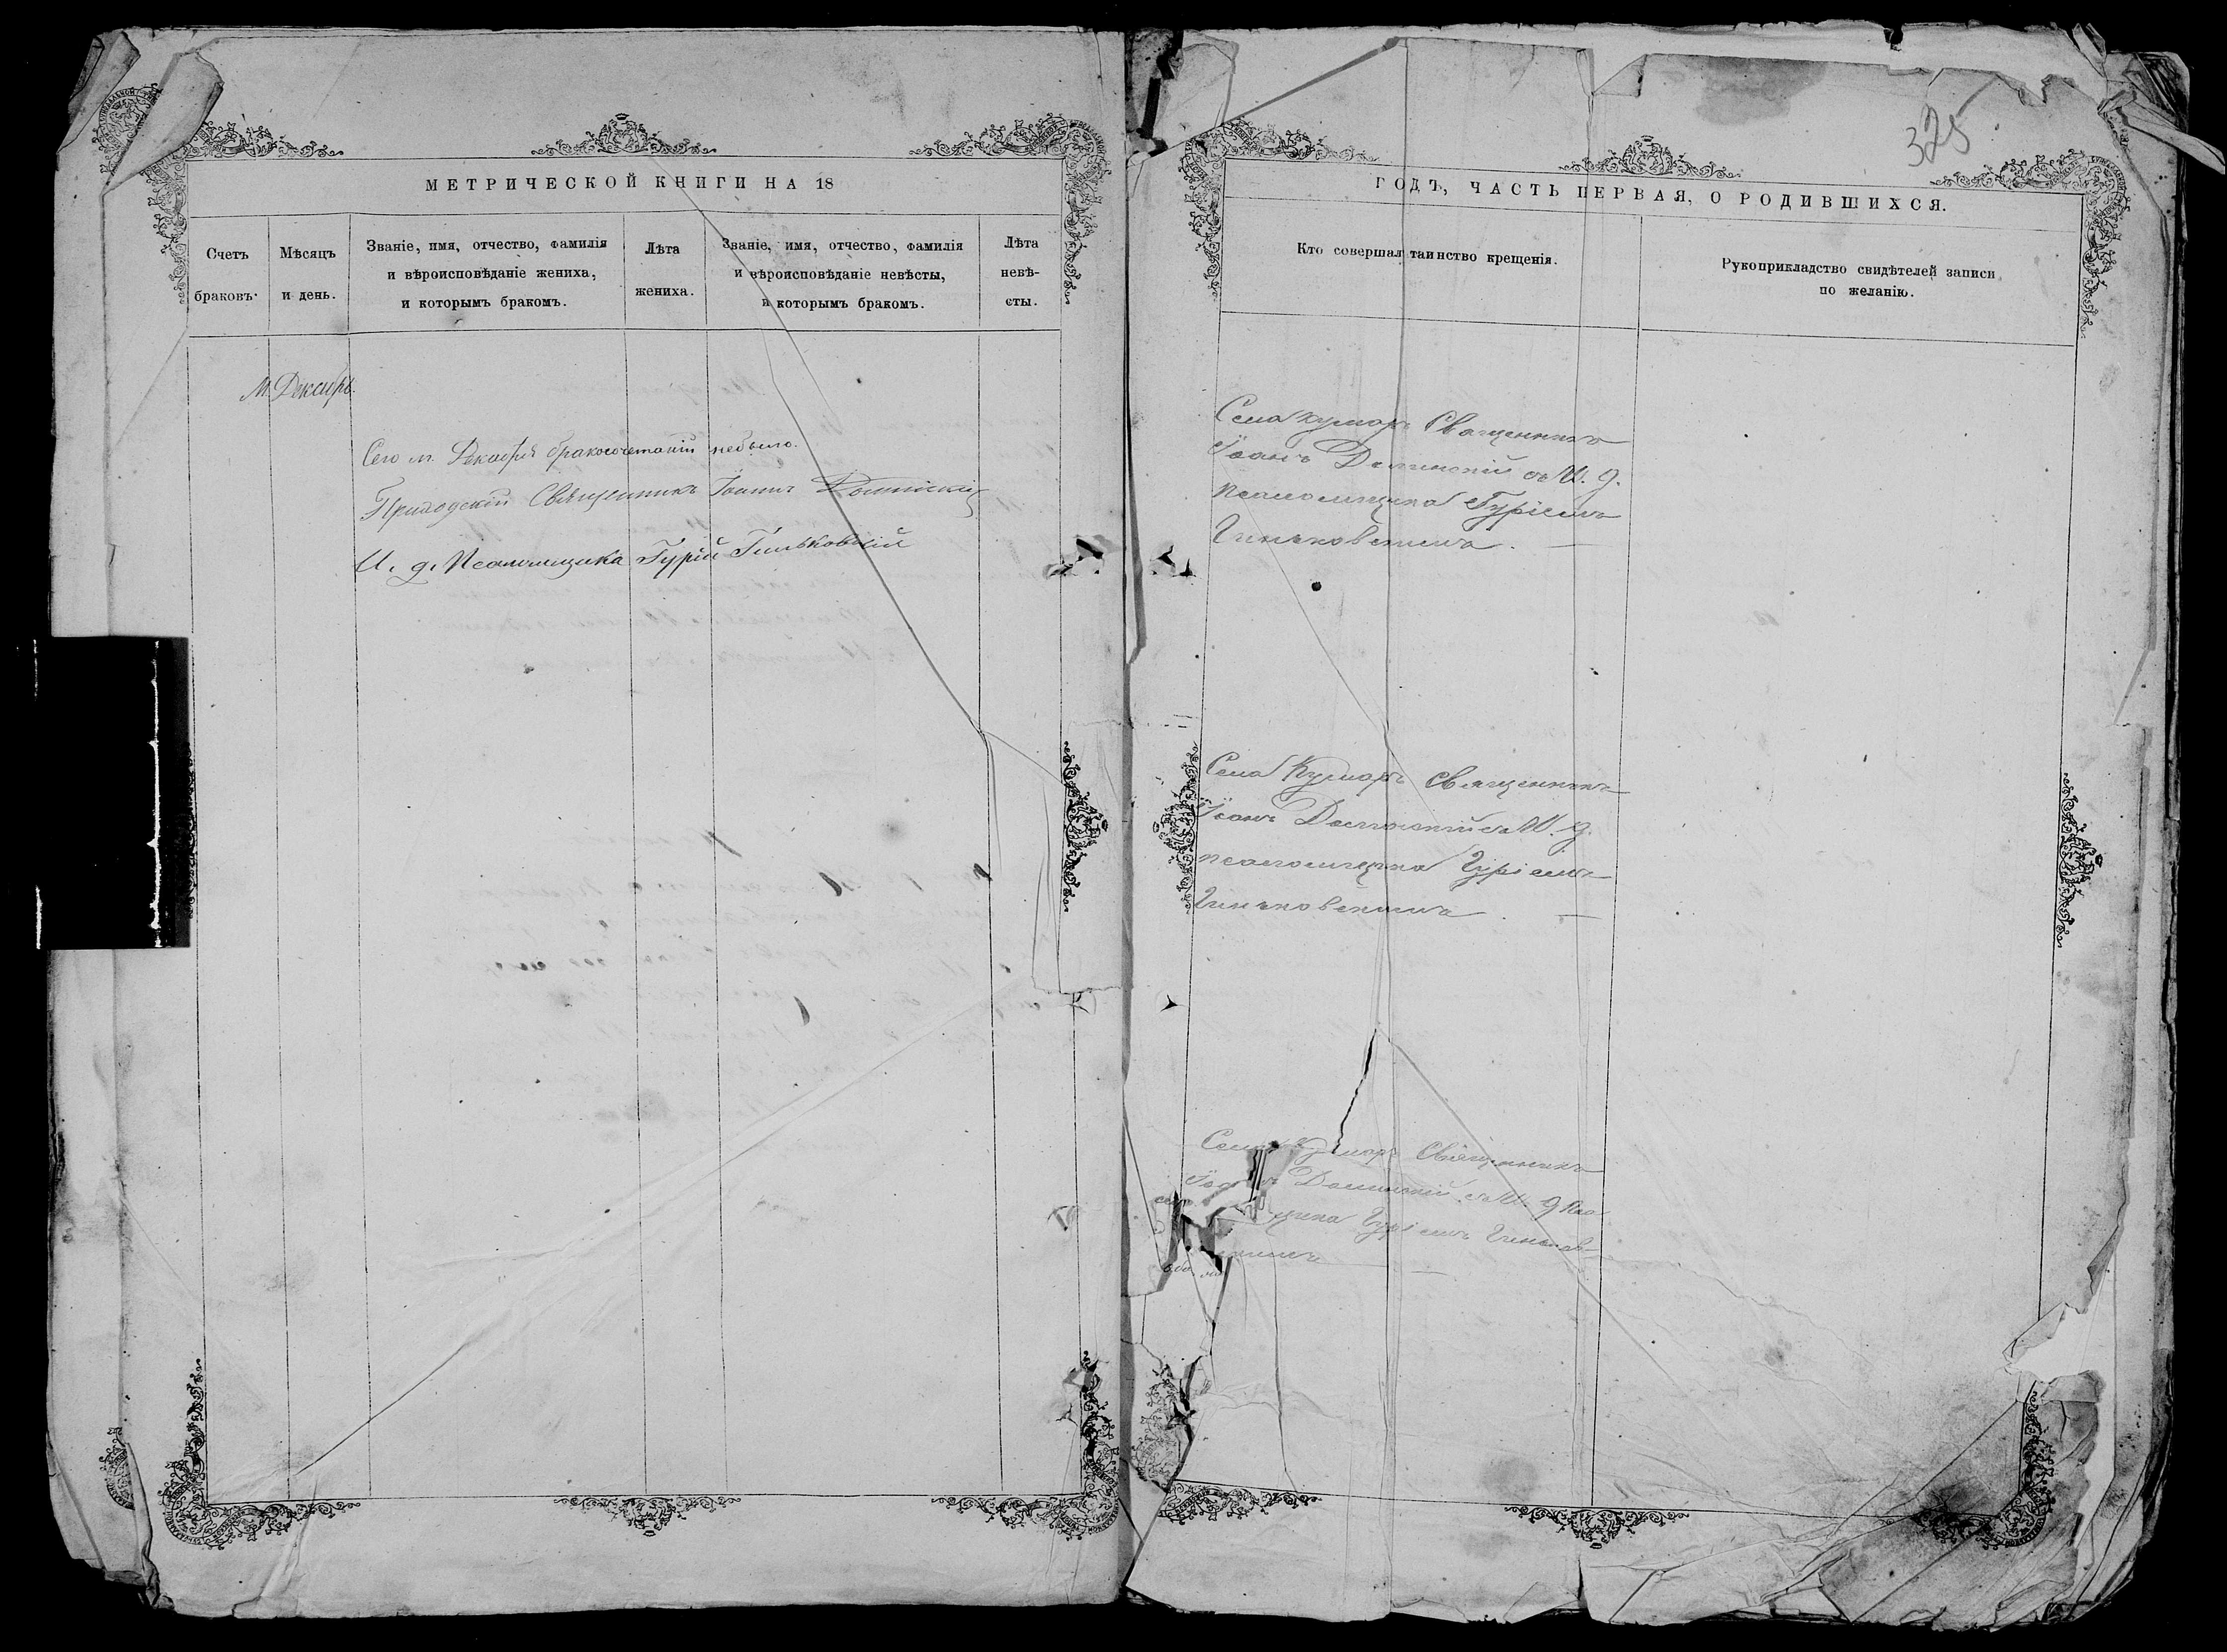 МЕТРИЧЕСКОЙ КНИГИ НА 18
Счетъ браковъ.
Мѣсяцъ и день.
Званіе, имя, отчество, фамилія
и вѣроисповѣданіе жениха,
и которымъ бракомъ.
Лѣта
жениха.
Званіе, имя, отчество, фамилія
и вѣроисповѣданіе невѣсты,
и которымъ бракомъ.
Лѣта
невѣ-
сты.
М. Декабрь.
Сего м. Декабря бракосочетаній небыло.
Приходскій Священникъ Іоаннъ
И. д. Псаломщика Гурій Гиньковскій
325
ГОДЪ, ЧАСТЬ ПЕРВАЯ, О РОДИВШИХСЯ.
Кто совершал таинство крещенія.
Рукоприкладство свидѣтелей записи
по желанію.
Села Кумаръ Священникъ
Іоанъ Долинскій съ И. д.
псаломщика Гуріемъ
Гиньковскимъ. —
Села Кумаръ Священникъ
Іоанъ Долинскій съ И. д.
псаломщика Гуріемъ
Гиньковскимъ. —
Села Кумаръ Священникъ
Долинскій съ И. д. Пса
щика Гуріемъ Гиньков-
скимъ —